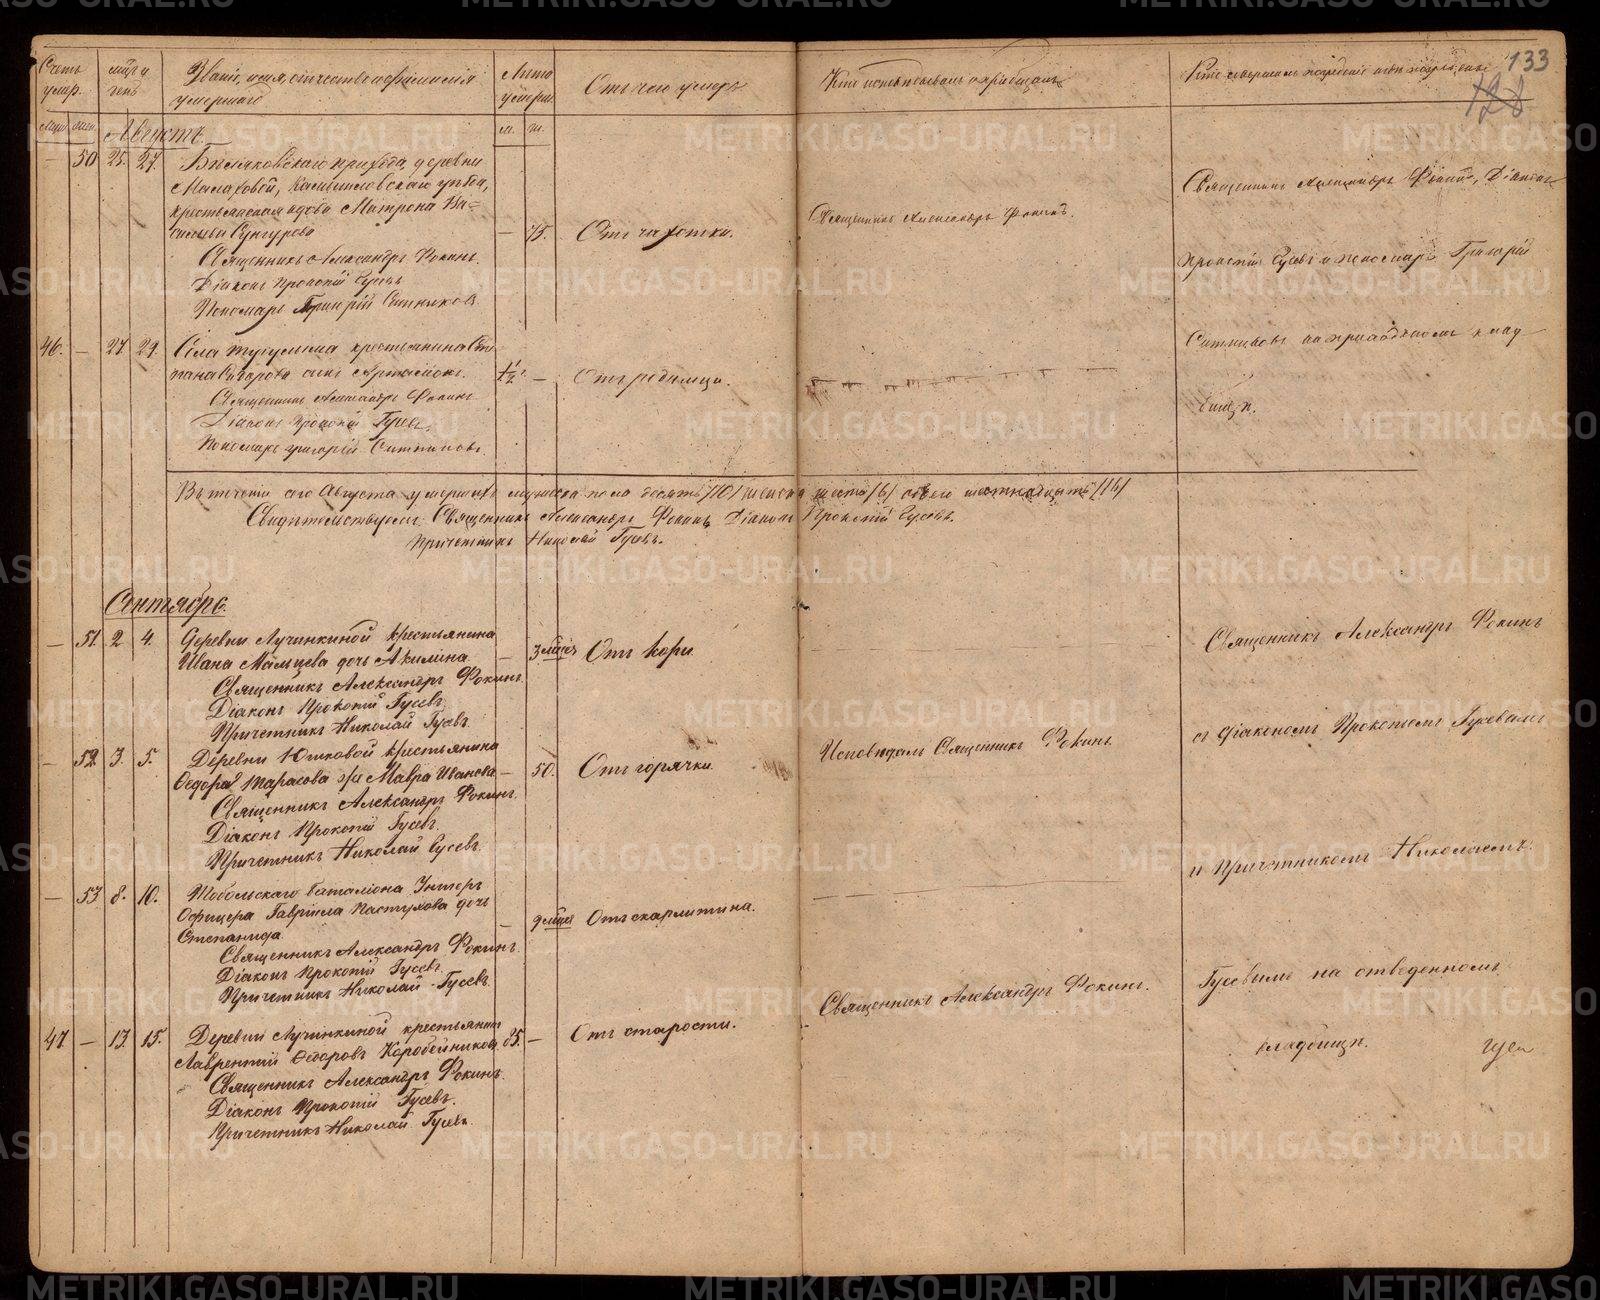 133
128
Счетъ умер.
мѣс. и день
Званіе, имя, отчество и фамилія умершаго
Лета умерш.
Отъ чего умеръ
Кто исповѣдывалъ и пріобщалъ
Кто совершалъ погребеніе и гдѣ погребены
Муж. жен.
м. ж.
Августъ.
— 50 25. 27.
Бѣляковскаго прихода, деревни
Малаховой, Камышловскаго уѣзда,
крестьянская вдова Матрона Ва=
сильева Сунгурова
— 75. Отъ чахотки.
Священникъ Александръ Фокинъ.
Священникъ Александръ Фокинъ.
Діаконъ Прокопій Гусевъ
Пономарь Григорій Ситниковъ.
46. — 27 29.
Села Тугулыма крестьянина Сте
пана Сидорова сынъ Артамонъ.
1/2 г. — Отъ родимца.
Священникъ Александръ Фокинъ
Діаконъ Прокопій Гусевъ.
Пономарь Григорій Ситниковъ.
Священникъ Александръ Фокинъ, Діаконъ
Прокопій Гусевъ и пономарь Григорій
Ситниковъ на приходскомъ клад
бищѣ.
Въ теченіи сего Августа умершихъ мужеска пола десять /10/ женска шесть /6/ обоего шестнадцать /16/
Свидѣтельствуемъ: Священникъ Александръ Фокинъ Діаконъ Прокопій Гусевъ.
Причетникъ Николай Гусевъ.
Сентябрь.
— 51. 2 4.
Деревни Лучинкиной крестьянина
Ивана Мальцева дочь Акилина
— 3 мѣсяц Отъ кори.
Священникъ Александръ Фокинъ.
Діаконъ Прокопій Гусевъ
Причетникъ Николай Гусевъ
— 52. 3. 5.
Деревни Юшковой крестьянина
Ѳедора Тарасова жена Мавра Иванова
— 50. Отъ горячки.
Исповѣдалъ Священникъ Фокинъ.
Священникъ Александръ Фокинъ.
Діаконъ Прокопій Гусевъ.
Причетникъ Николай Гусевъ.
— 53 8. 10.
Тобольскаго баталіона Унтеръ
Офицера Гавріила Пастухова дочь
Степанида
— 9 мѣсяц Отъ скарлатина.
Священникъ Александръ Фокинъ.
Діаконъ Прокопій Гусевъ.
Причетникъ Николай Гусевъ.
47. — 13. 15.
Деревни Лучинкиной крестьянин
Лаврентій Ѳедоровъ Коробейниковъ
85. — Отъ старости.
Священникъ Александръ Фокинъ.
Священникъ Александръ Фокинъ.
Діаконъ Прокопій Гусевъ.
Причетникъ Николай Гусевъ.
Священникъ Александръ Фокинъ
съ Діакономъ Прокопіемъ Гусевымъ
и Причетникомъ Николаемъ
Гусевымъ на отведенномъ
кладбищѣ.
METRIKI.GASO-URAL.RU